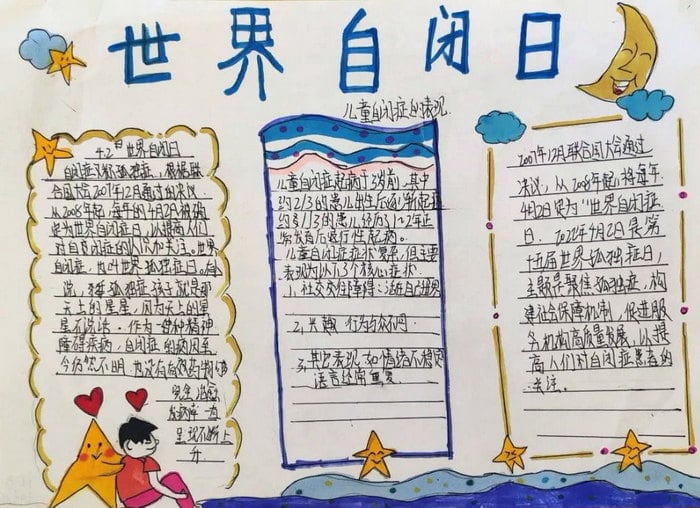 世界自闭日
4.2世界自闭日
自闭症又称孤独症，根据联
合国大会2007年12月通过的决议，
从2008年起，每年的4月2日被确
定为世界自闭症日，以提高人们
对自闭症的认知和关注。世界
自闭症，也叫世界孤独症日。有人
说，患孤独症孩子就是那
天上的星星，因为天上的星
星不说话。作为一种精神
障碍疾病，自闭症的病因至
今仍然不明，也没有有效药物
完全治愈
发病率一直
呈现不断上
升
儿童自闭症的表现
儿童自闭症起病于3岁前，其中
约2/3的患儿出生后逐渐起病
约1/3的患儿经历了1~2年正
常发育后退行性起病。
儿童自闭症症状复杂，但主要
表现为以下3个核心症状
1. 社交交往障碍：活在自己世界
2. 兴趣 行为与众不同
3. 其它表现，如情绪不稳定
语言经常重复
2007年12月联合国大会通过
决议，从2008年起，将每年
4月2日定为“世界自闭症
日。2022年4月2日是第
十五届世界孤独症日，
主题是聚焦孤独症，构
建社会保障机制，促进服
务机构高质量发展，以提
高人们对自闭症患者的
关注。